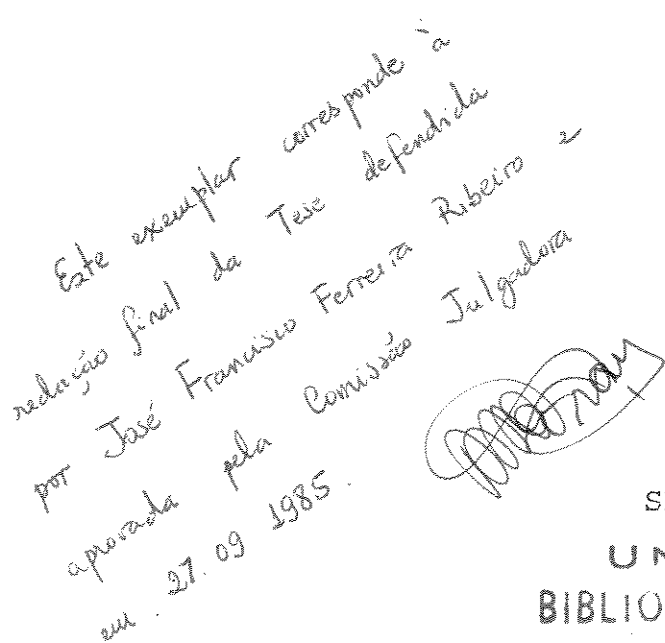 Este exemplar corresponde à
redação final da Tese defendida
por José Francisco Ferreira Ribeiro e
aprovada pela Comissão Julgadora
em. 27.09 1985.
S
UN
BIBLIO